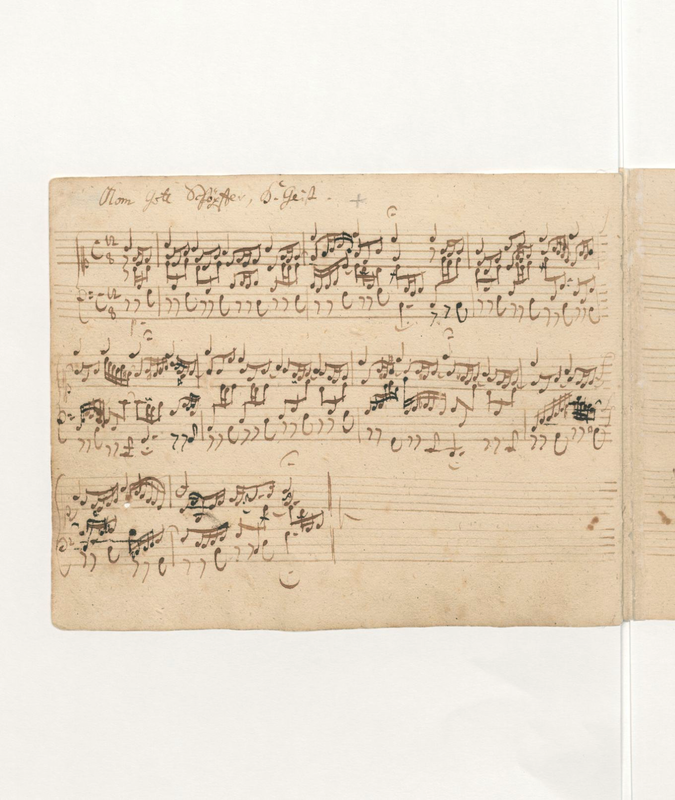 Kom Gott Schöpffer, H. Geist.
12
8
12
8